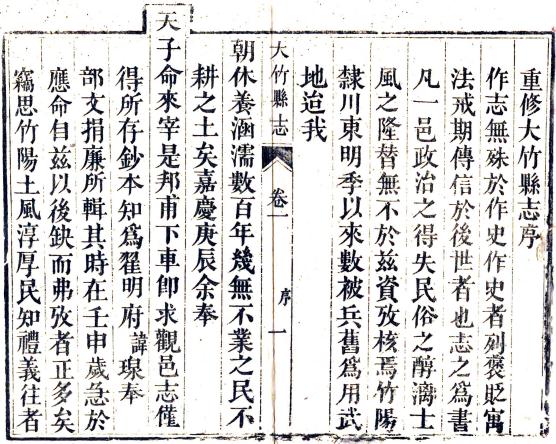 重修大竹縣志序
作志無殊於作史作史者列褒貶寓
法戒期傳信於後世者也志之爲書
凡一邑政治之得失民俗之醇漓士
風之隆替無不於兹資攷核焉竹陽
隸川東明季以來數被兵舊爲用武
地迨我
大竹縣志 卷一 序 一
朝休養涵濡數百年幾無不業之民不
耕之土矣嘉慶庚辰余奉
天子命來宰是邦甫下車卽求觀邑志僅
得所存鈔本知爲翟明府諱琅奉
部文捐廉所輯其時在壬申歲急於
應命自兹以後缺而弗攷者正多矣
竊思竹陽土風淳厚民知禮義往者